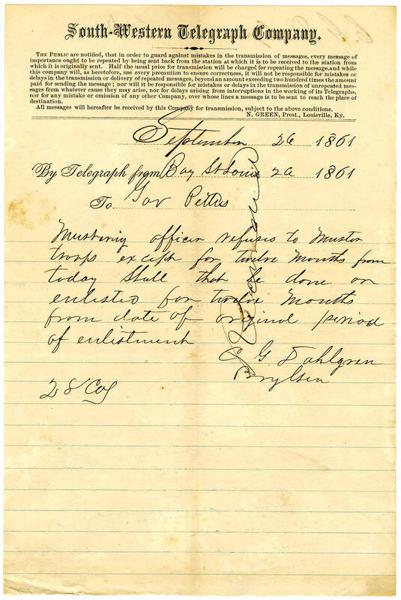 South-Western Telegraph Company.
THE PUBLIC are notified, that in order to guard against mistakes in the transmission of messages, every message of
importance ought to be repeated by being sent back from the station at which it is to be received to the station from
which it is originally sent. Half the usual price for transmission will be charged for repeating the message, and while
this company will, as heretofore, use every precaution to ensure correctness, it will not be responsible for mistakes or
delays in the transmission or delivery of repeated messages, beyond an amount exceeding two hundred times the amount
paid for sending the message; nor will it be responsible for mistakes or delays in the transmission of unrepeated mes-
sages from whatever cause they may arise, nor for delays arising from interruptions in the working of its Telegraphs,
nor for any mistake or omission of any other Company, over whose lines a message is to be sent to reach the place of
destination.
All messages will hereafter be received by this Company for transmission, subject to the above conditions.
N. GREEN, Prest., Louisville, Ky.
September 26 1861
By Telegraph from Bay St Louis 26 1861
To Gov Pettus
Mustering officer refuses to Muster
troops except for twelve Months from
today Shall that be done or
enlisted for twelve Months
from date of original period
of enlistment
C G Dahlgren
28